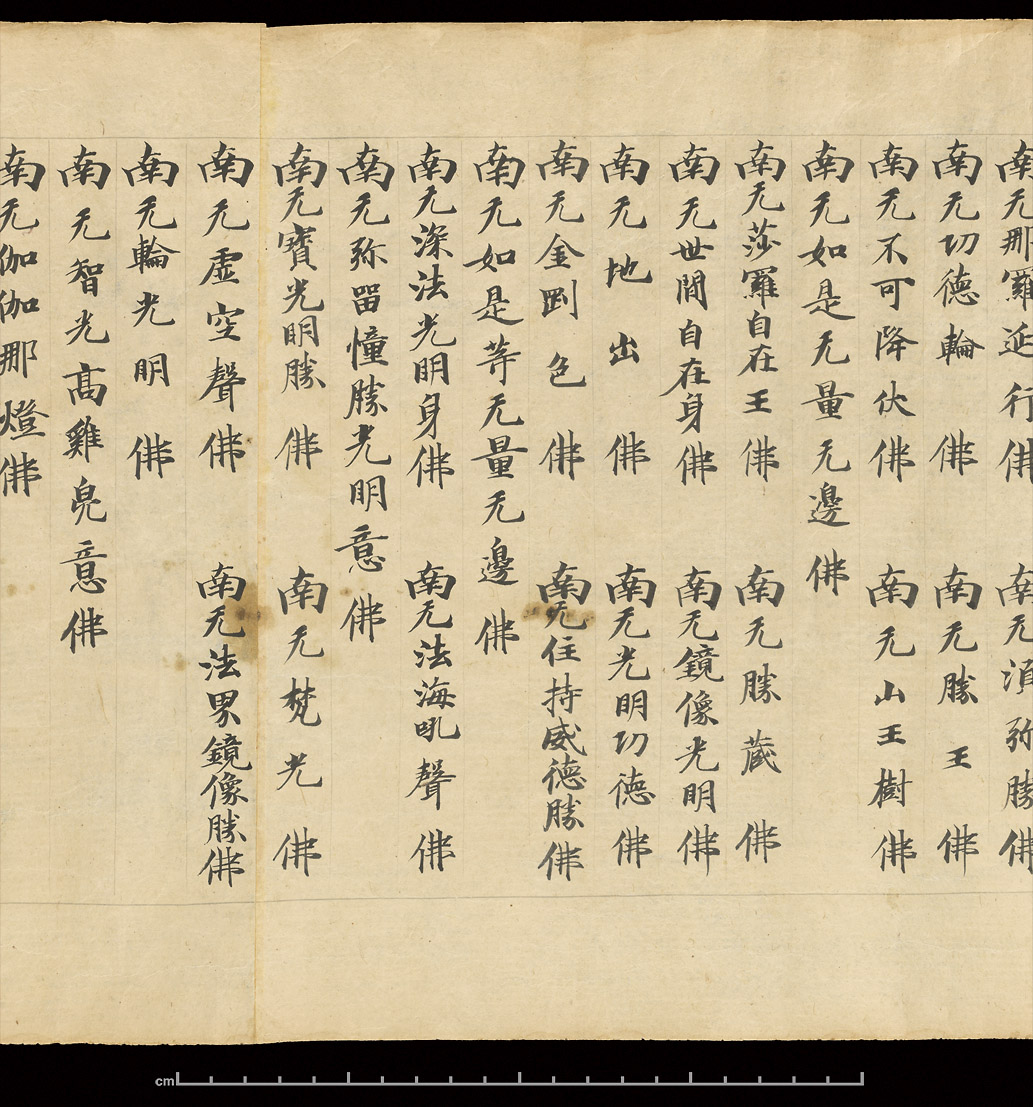 南无那羅延行佛　南无須弥勝佛
南无功德輪佛　南无勝王佛
南无不可降伏佛　南无山王樹佛
南无如是无量无邊佛
南无莎羅自在王佛　南无勝藏佛
南无世間自在身佛　南无鏡像光明佛
南无地出佛　南无光明功德佛
南无金剛色佛　南无住持威德勝佛
南无如是等无量无邊佛
南无深法光明身佛　南无法海吼聲佛
南无弥留幢勝光明意佛
南无寶光明勝佛　南无梵光佛
南无虛空聲佛　南无法界鏡像勝佛
南无輪光明佛
南无智光高雞兜意佛
南无伽伽那燈佛
cm